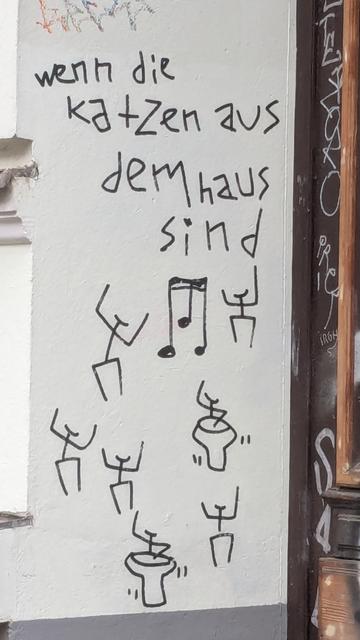 wenn die
katzen aus
dem haus
sind